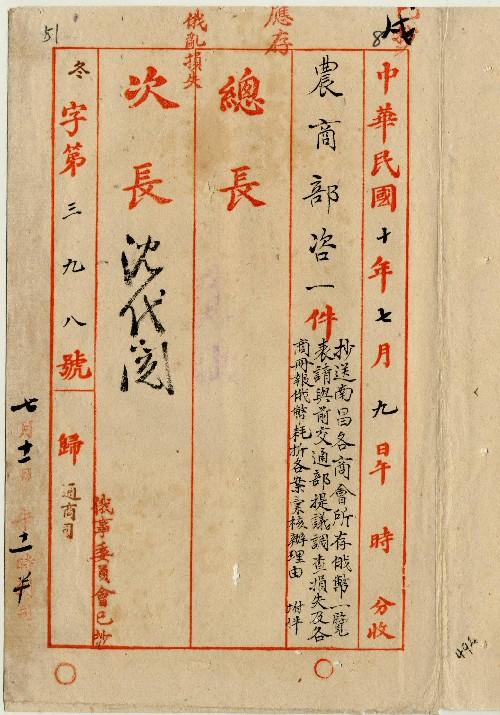 應存
俄亂損失
51
中華民國十年七月九日午時分收
農商部咨一件
抄送南昌各商會所存俄幣一覽
表請與前交通部提議調查損失及各
商冊報俄幣耗折各案彙核辦理由 附件
總長
次長 沈代閱
冬字第三九八號 歸 通商司
俄事委員會已抄
七月十二日